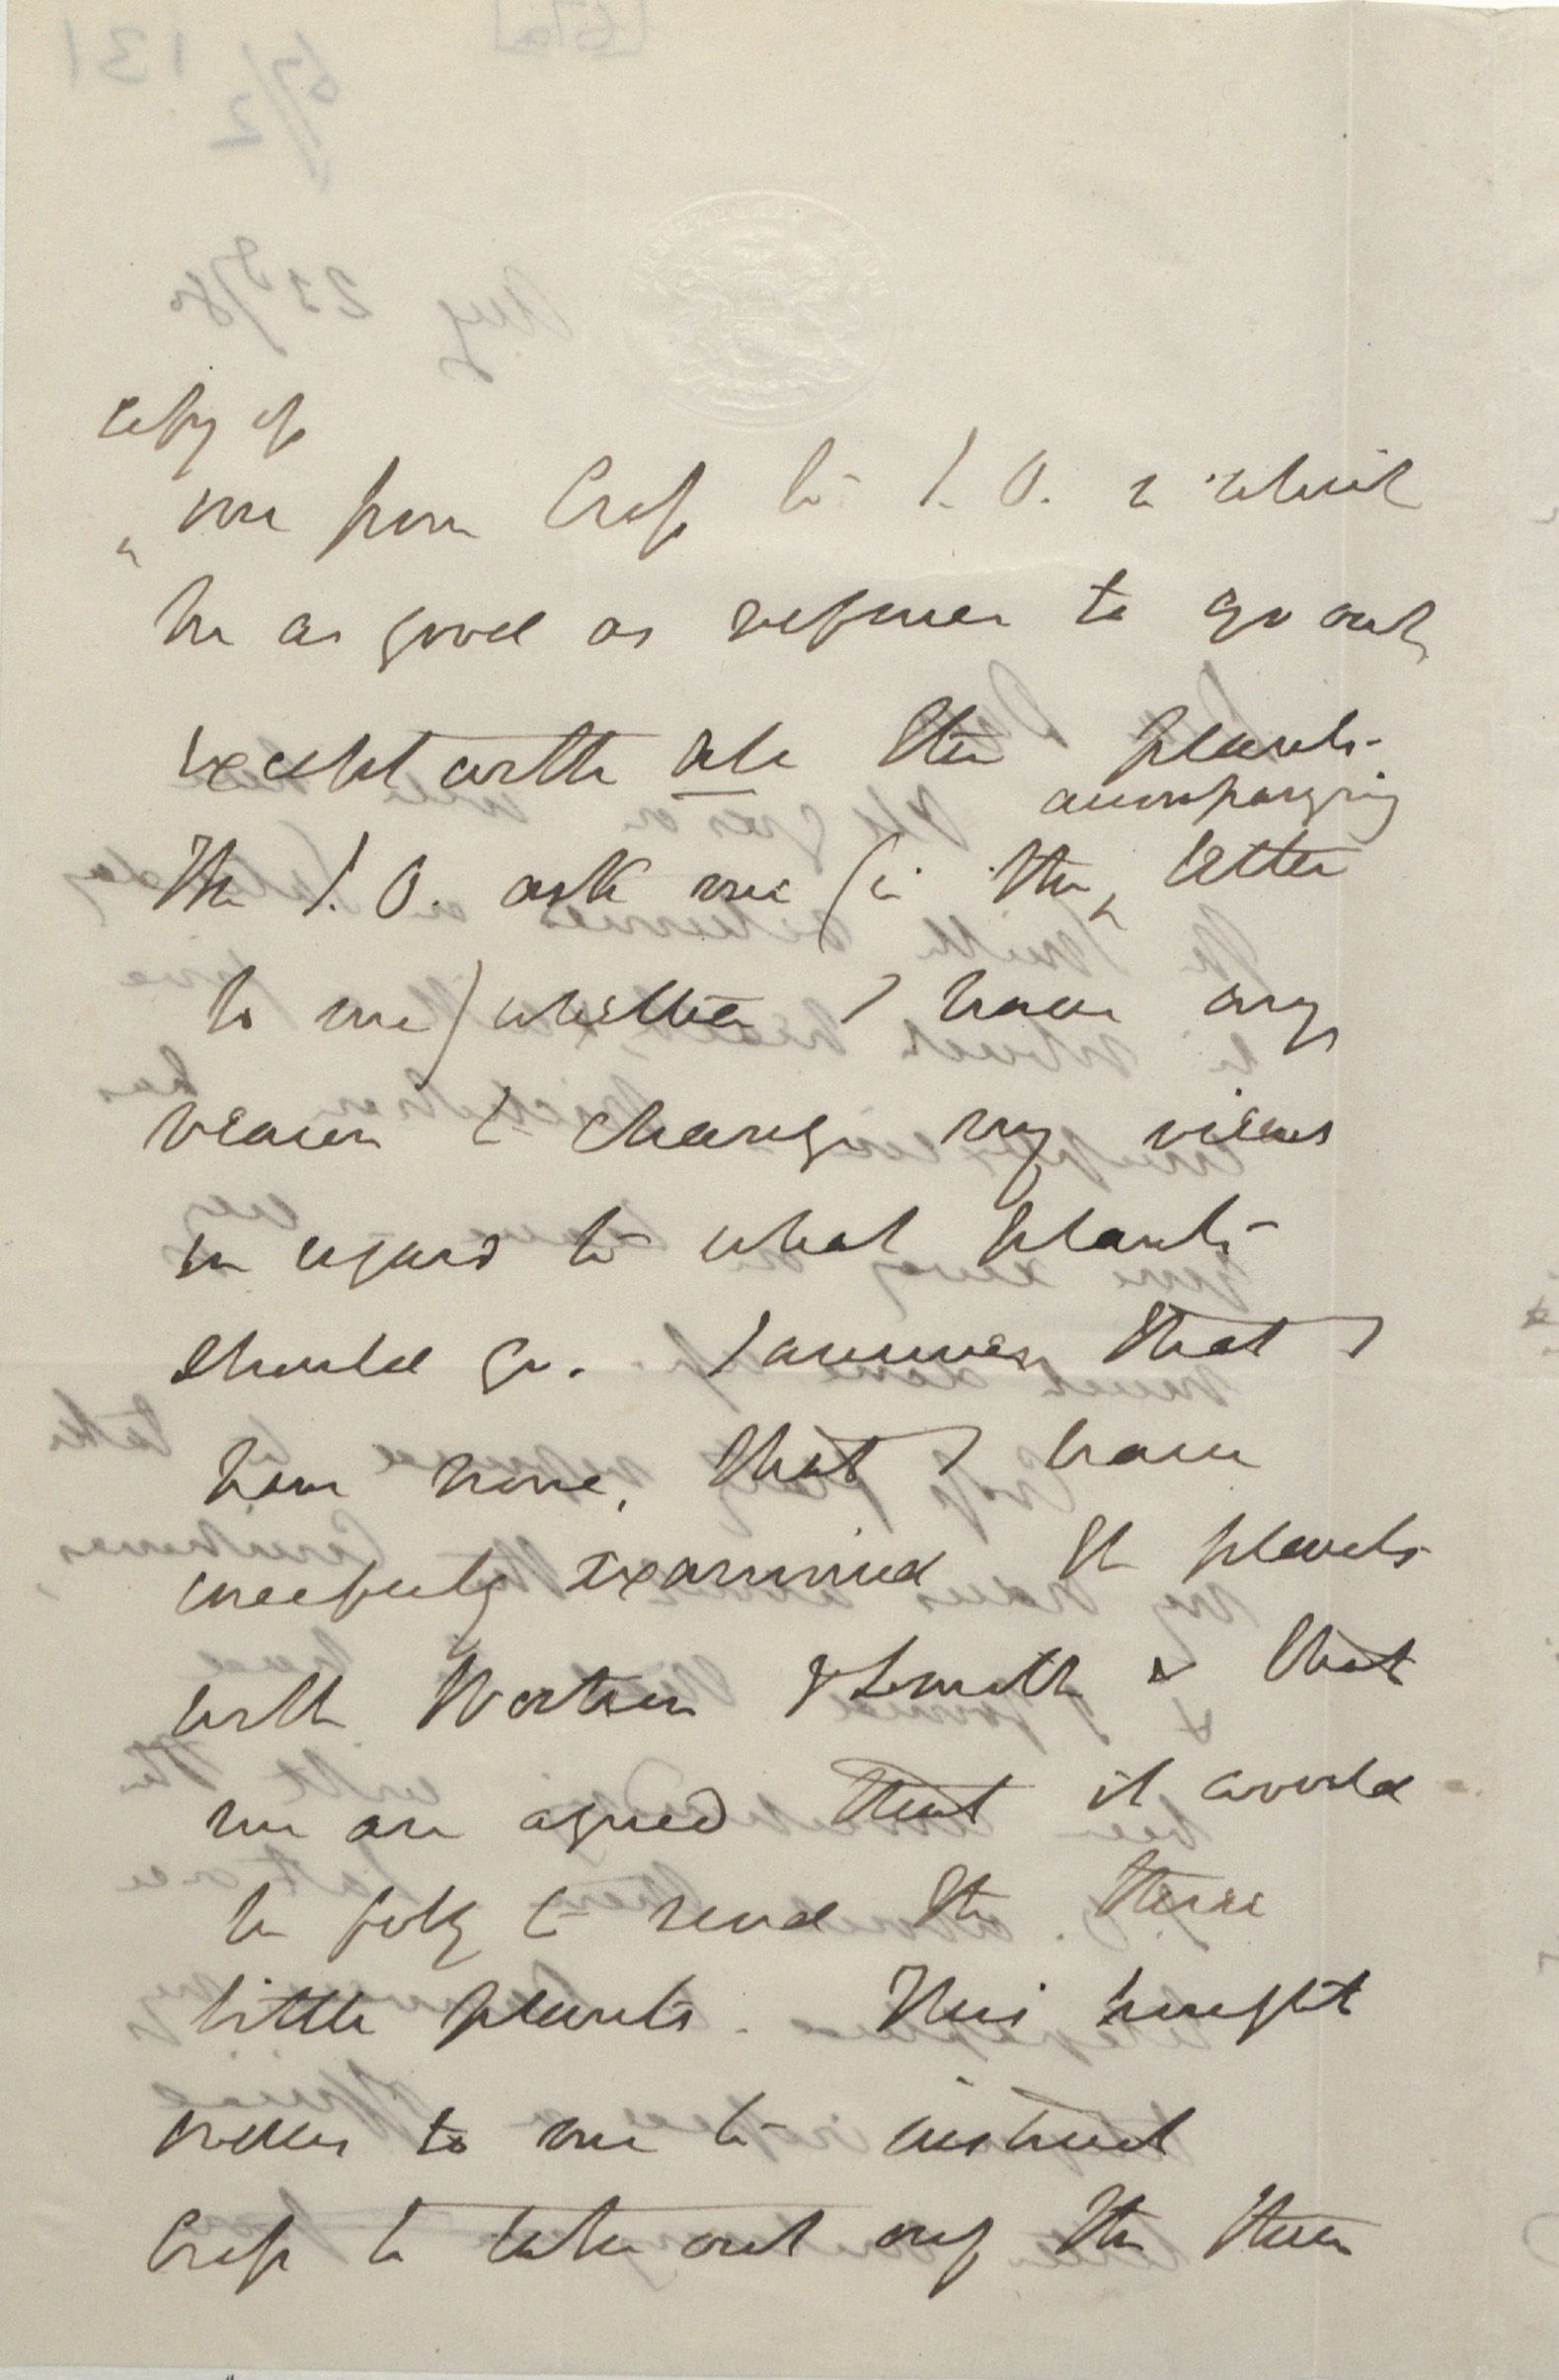 copy of
one from Cross to I.O. in which
he as good as refuses to go out
except with all the plants.
accompanying
The I.O. ask me (in the letter
to me) whether I have any
reason to change my views
in regard to what plants
should go. I answer that I
have none, that I have
carefully examined the plants
with & Smith & that
we are agreed that it would
be folly to send the these
little plants. This brought
orders to me to instruct
Cross to take out only the three